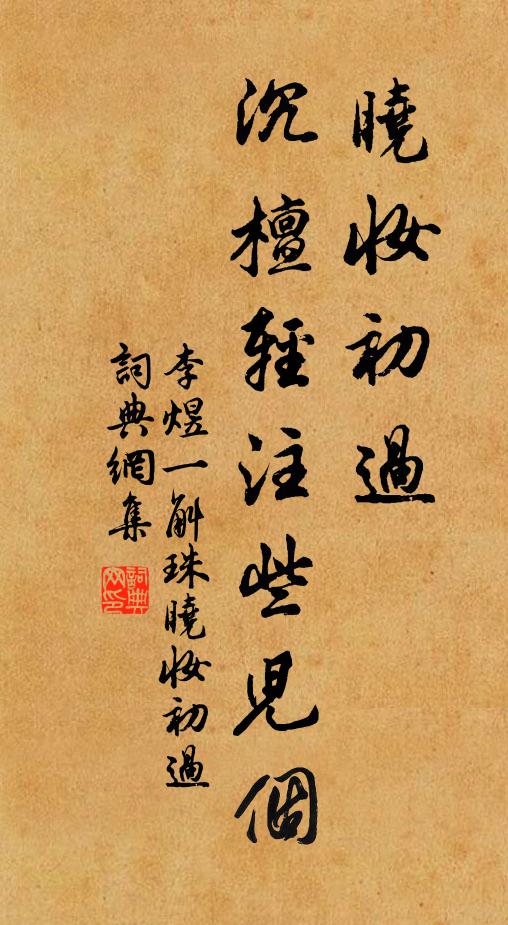 曉妝初過
沉檀輕注些兒個
李煜一斛珠曉妝初過
詞典網集
詞典
网印